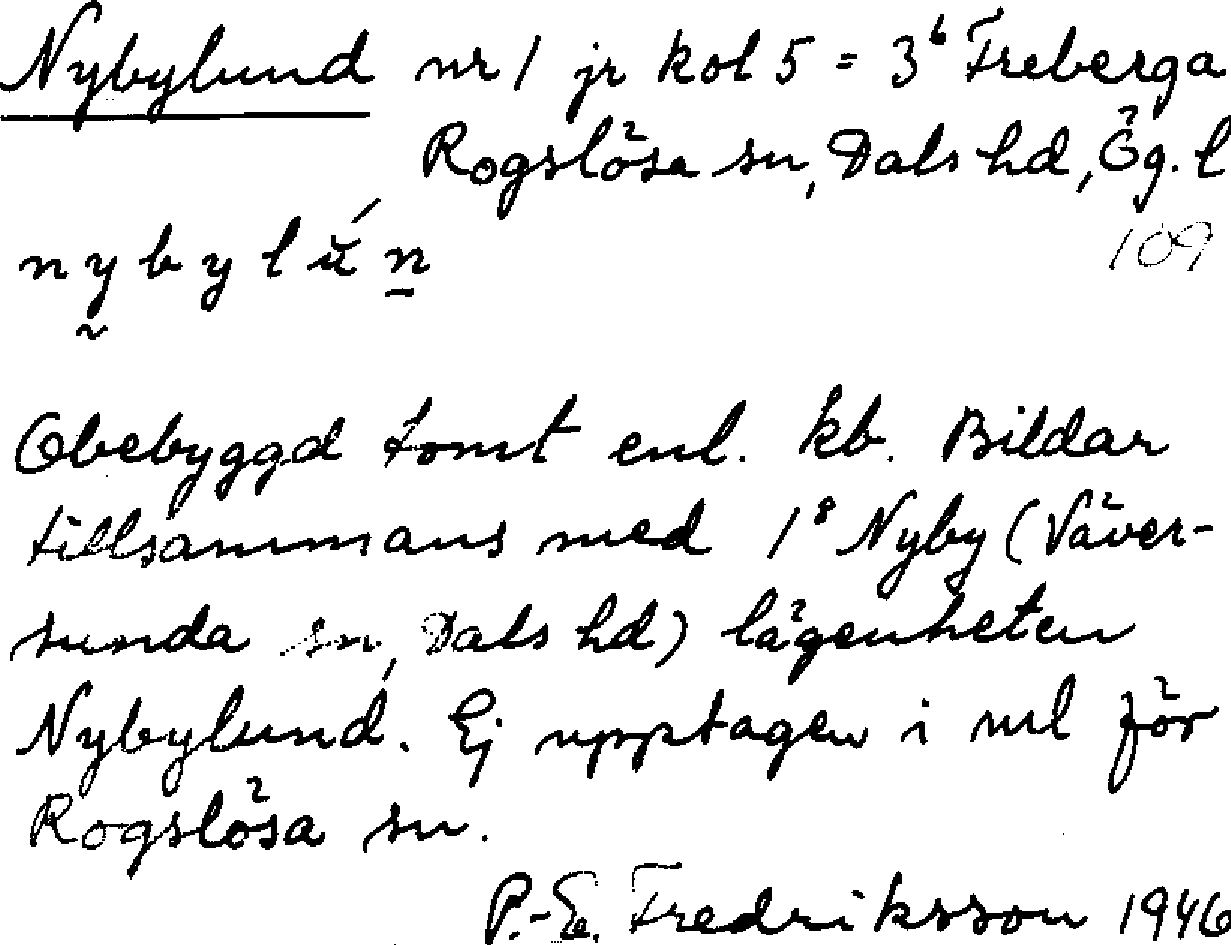 Nybylund nr 1 jr kol 5 = 3⁶ Freberga
Rogslösa sn, Dals hd, Ög. l
109
nybylún
Obebyggd tomt enl. kb. Bildar
tillsammans med 1⁸ Nyby (Väver-
sunda sn, Dals hd) lägenheten
Nybylund. Ej upptagen i ml för
Rogslösa sn.
P.-E. Fredriksson 1946